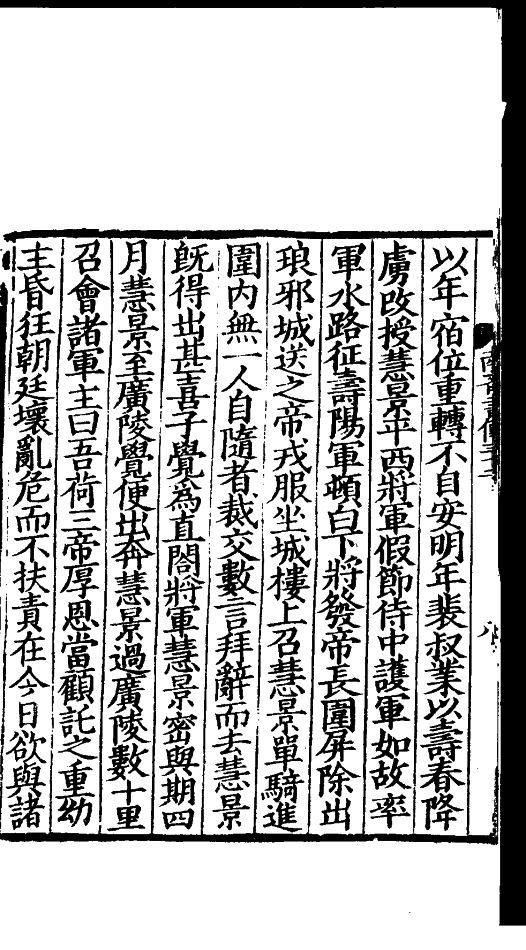 以年宿位重轉不自安明年裴叔業以壽春降
虜改授慧景平西將軍假節侍中護軍如故率
軍水路征壽陽軍頓白下將發帝長圍屏除出
琅邪城送之帝戎服坐城樓上召慧景單騎進
圍内無一人自隨者裁交數言拜辭而去慧景
旣得出甚喜子覺為直閤將軍慧景密與期四
月慧景至廣陵覺便出奔慧景過廣陵數十里
召會諸軍主曰吾荷三帝厚恩當顧託之重幼
主昏狂朝廷壞亂危而不扶責在今日欲與諸